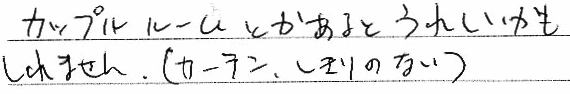 カップルルームとかあるとうれしいかも
しれません.(カーテン、しきりのない)